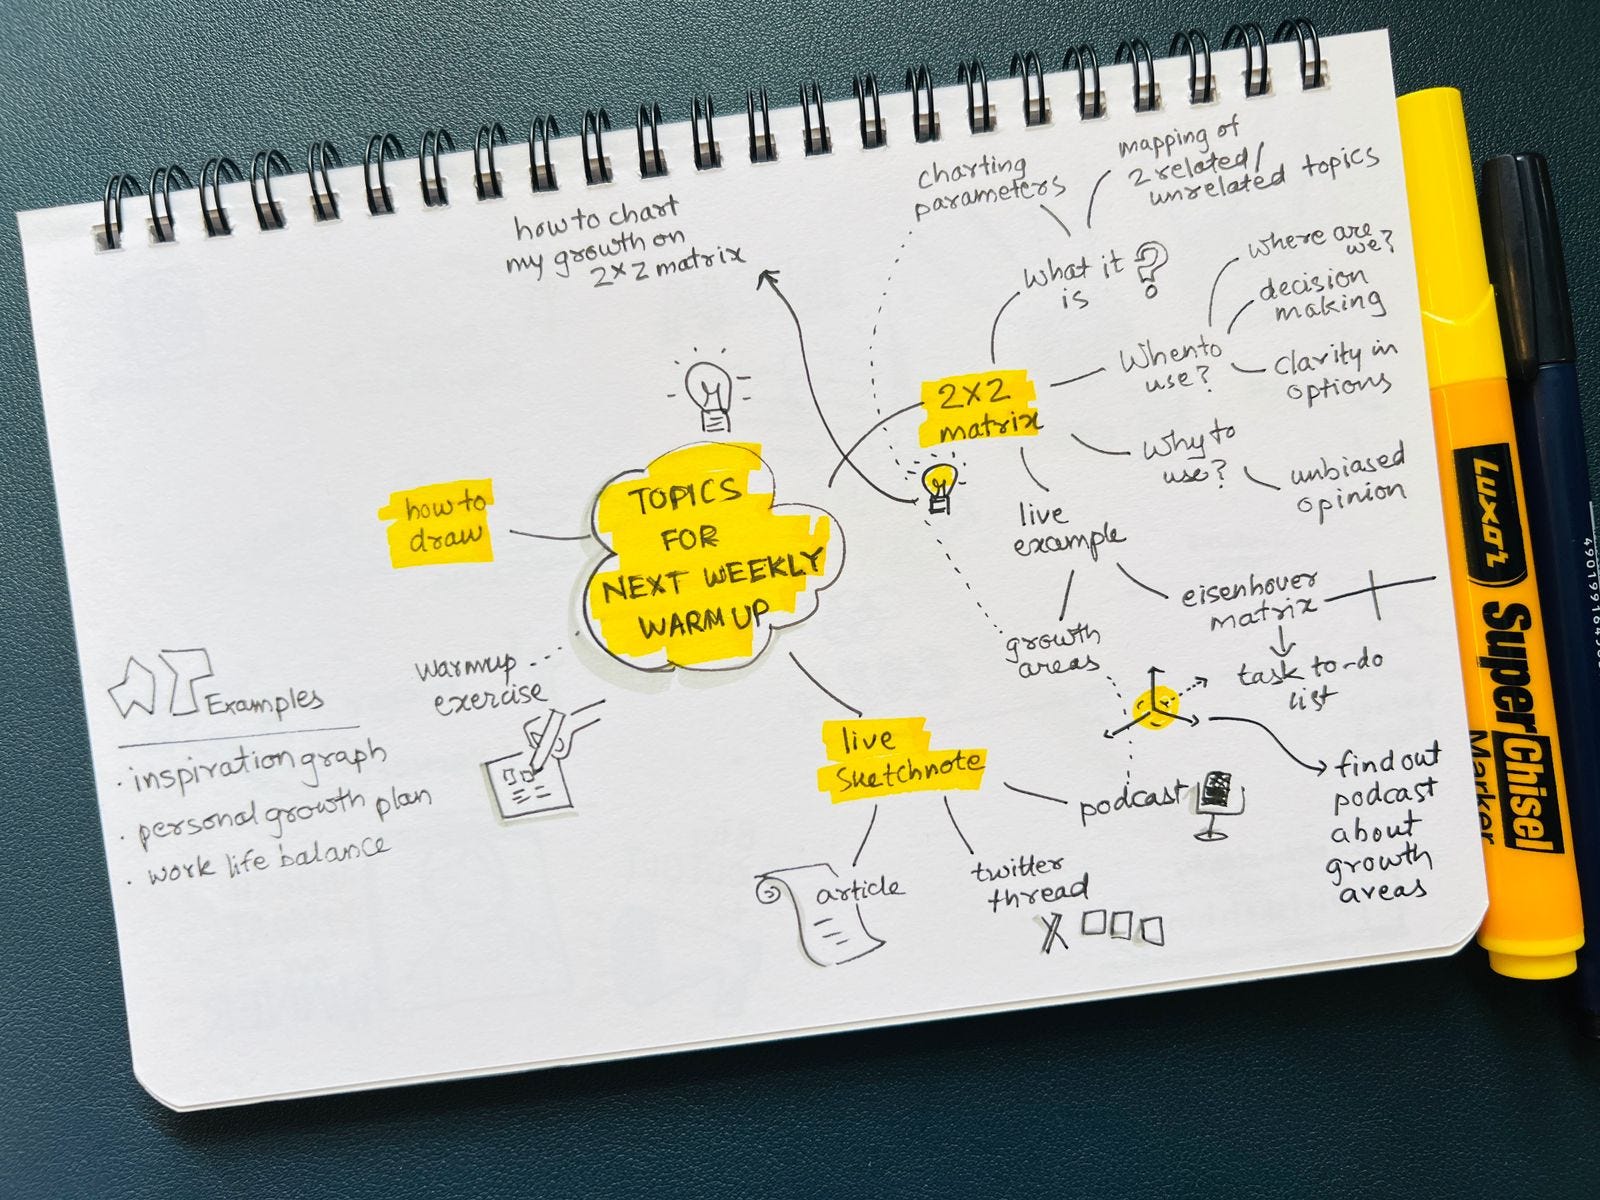 how to chart
my growth on
2x2 matrix
charting
parameters
mapping of
2 related/
unrelated topics
What it
is
?
where are
we?
decision
making
When to
use?
Clarity in
options
2x2
matrix
Why to
use?
unbiased
opinion
live
example
growth
areas
eisenhover
matrix
task to-do
list
how to
draw
TOPICS
FOR
NEXT WEEKLY
WARM UP
warmup
exercise
Examples
· inspiration graph
· personal growth plan
· work life balance
live
Sketchnote
podcast
find out
podcast
about
growth
areas
article
twitter
thread
X
Luxor
SuperChisel
Marker